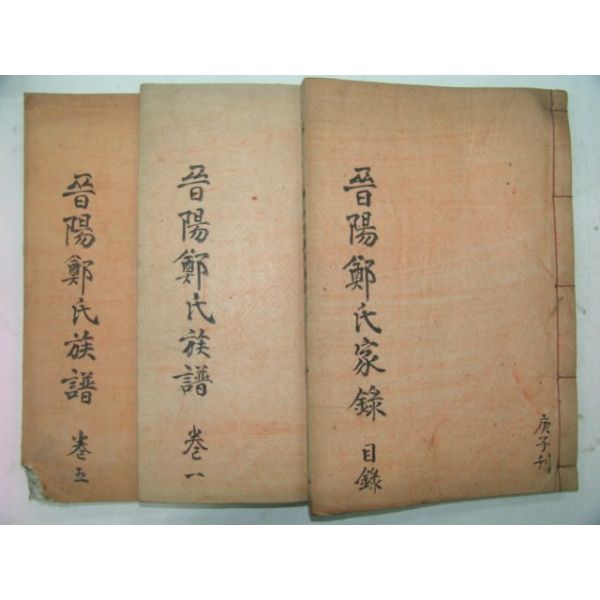 晉陽鄭氏家錄 目錄
庚子刊
晉陽鄭氏族譜 卷一
晉陽鄭氏族譜 卷五